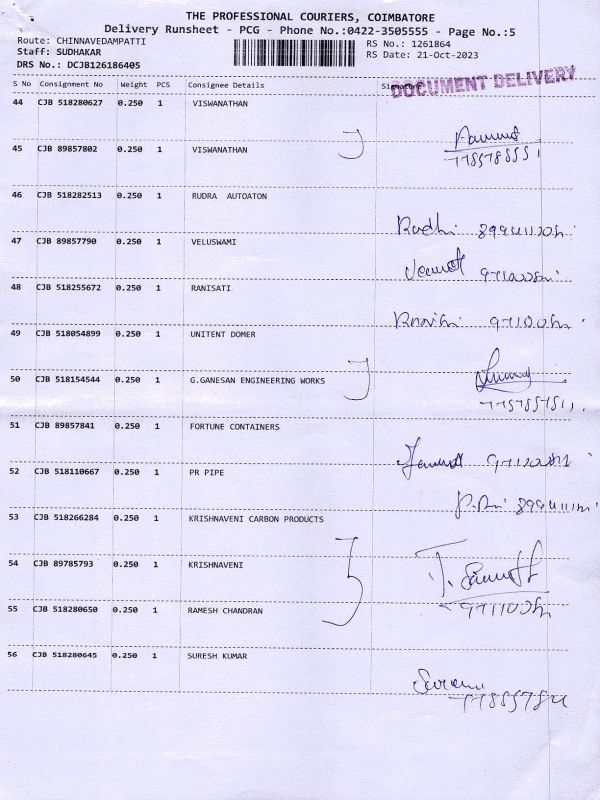 THE PROFESSIONAL COURIERS, COIMBATORE
Delivery Runsheet - PCG - Phone No.:0422-3505555 - Page No.:5
Route: CHINNAVEDAMPATTI
RS No.: 1261864
Staff: SUDHAKAR
RS Date: 21-Oct-2023
DRS No.: DCJB126186405
DOCUMENT DELIVERY
S No Consignment No Weight PCS Consignee Details Signature
44 CJB 518280627 0.250 1 VISWANATHAN
45 CJB 89857802 0.250 1 VISWANATHAN
46 CJB 518282513 0.250 1 RUDRA AUTOATON
47 CJB 89857790 0.250 1 VELUSWAMI
48 CJB 518255672 0.250 1 RANISATI
49 CJB 518054899 0.250 1 UNITENT DOMER
50 CJB 518154544 0.250 1 G.GANESAN ENGINEERING WORKS
51 CJB 89857841 0.250 1 FORTUNE CONTAINERS
52 CJB 518110667 0.250 1 PR PIPE
53 CJB 518266284 0.250 1 KRISHNAVENI CARBON PRODUCTS
54 CJB 89785793 0.250 1 KRISHNAVENI
55 CJB 518280650 0.250 1 RAMESH CHANDRAN
56 CJB 518280645 0.250 1 SURESH KUMAR